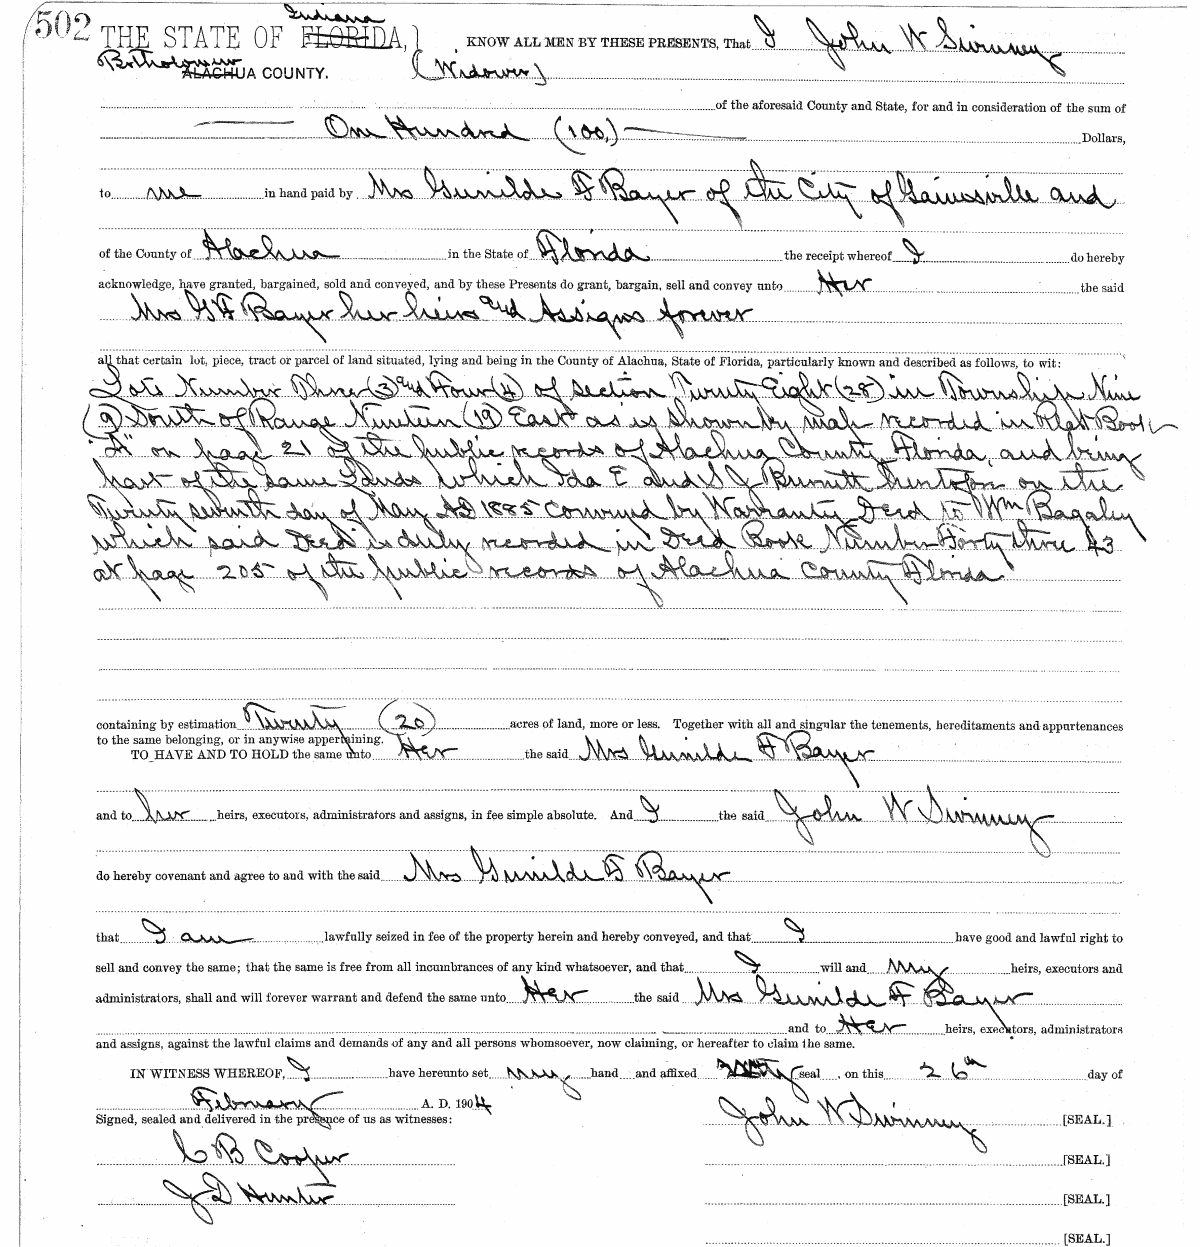 502 THE STATE OF FLORIDA, Indiana KNOW ALL MEN BY THESE PRESENTS, That I John W Swinney
ALACHUA COUNTY. (Widower)
of the aforesaid County and State, for and in consideration of the sum of
One Hundred (100.) Dollars,
to me in hand paid by Mrs Gunilde F Bayer of the City of Gainesville and
of the County of Alachua in the State of Florida the receipt whereof I do hereby
acknowledge, have granted, bargained, sold and conveyed, and by these Presents do grant, bargain, sell and convey unto Her the said
Mrs G F Bayer her heirs and Assigns forever
all that certain lot, piece, tract or parcel of land situated, lying and being in the County of Alachua, State of Florida, particularly known and described as follows, to wit:
Lots Number Three (3) and Four (4) of section Twenty Eight (28) in Township Nine
(9) South of Range Nineteen (19) East as is shown by map recorded in Plat Book
"A" on page 21 of the public records of Alachua County Florida, and being
part of the same Lands which Ida E and S J Burnett on the
Twenty seventh day of May AD 1885 conveyed by Warranty Deed to Wm Bagaley
which said Deed is duly recorded in Deed Book Number Forty three 43
at page 205 of the public records of Alachua County Florida
containing by estimation Twenty (20) acres of land, more or less. Together with all and singular the tenements, hereditaments and appurtenances
to the same belonging, or in anywise appertaining.
TO HAVE AND TO HOLD the same unto Her the said Mrs Gunilde F Bayer
and to her heirs, executors, administrators and assigns, in fee simple absolute. And I the said John W Swinney
do hereby covenant and agree to and with the said Mrs Gunilde F Bayer
that I am lawfully seized in fee of the property herein and hereby conveyed, and that I have good and lawful right to
sell and convey the same; that the same is free from all incumbrances of any kind whatsoever, and that I will and my heirs, executors and
administrators, shall and will forever warrant and defend the same unto Her the said Mrs Gunilde F Bayer
and to Her heirs, executors, administrators
and assigns, against the lawful claims and demands of any and all persons whomsoever, now claiming, or hereafter to claim the same.
IN WITNESS WHEREOF, I have hereunto set my hand and affixed seal, on this 26th day of
February A. D. 1904
Signed, sealed and delivered in the presence of us as witnesses: John W Swinney [SEAL.]
C B Cooper [SEAL.]
J D Hunter [SEAL.]
[SEAL.]